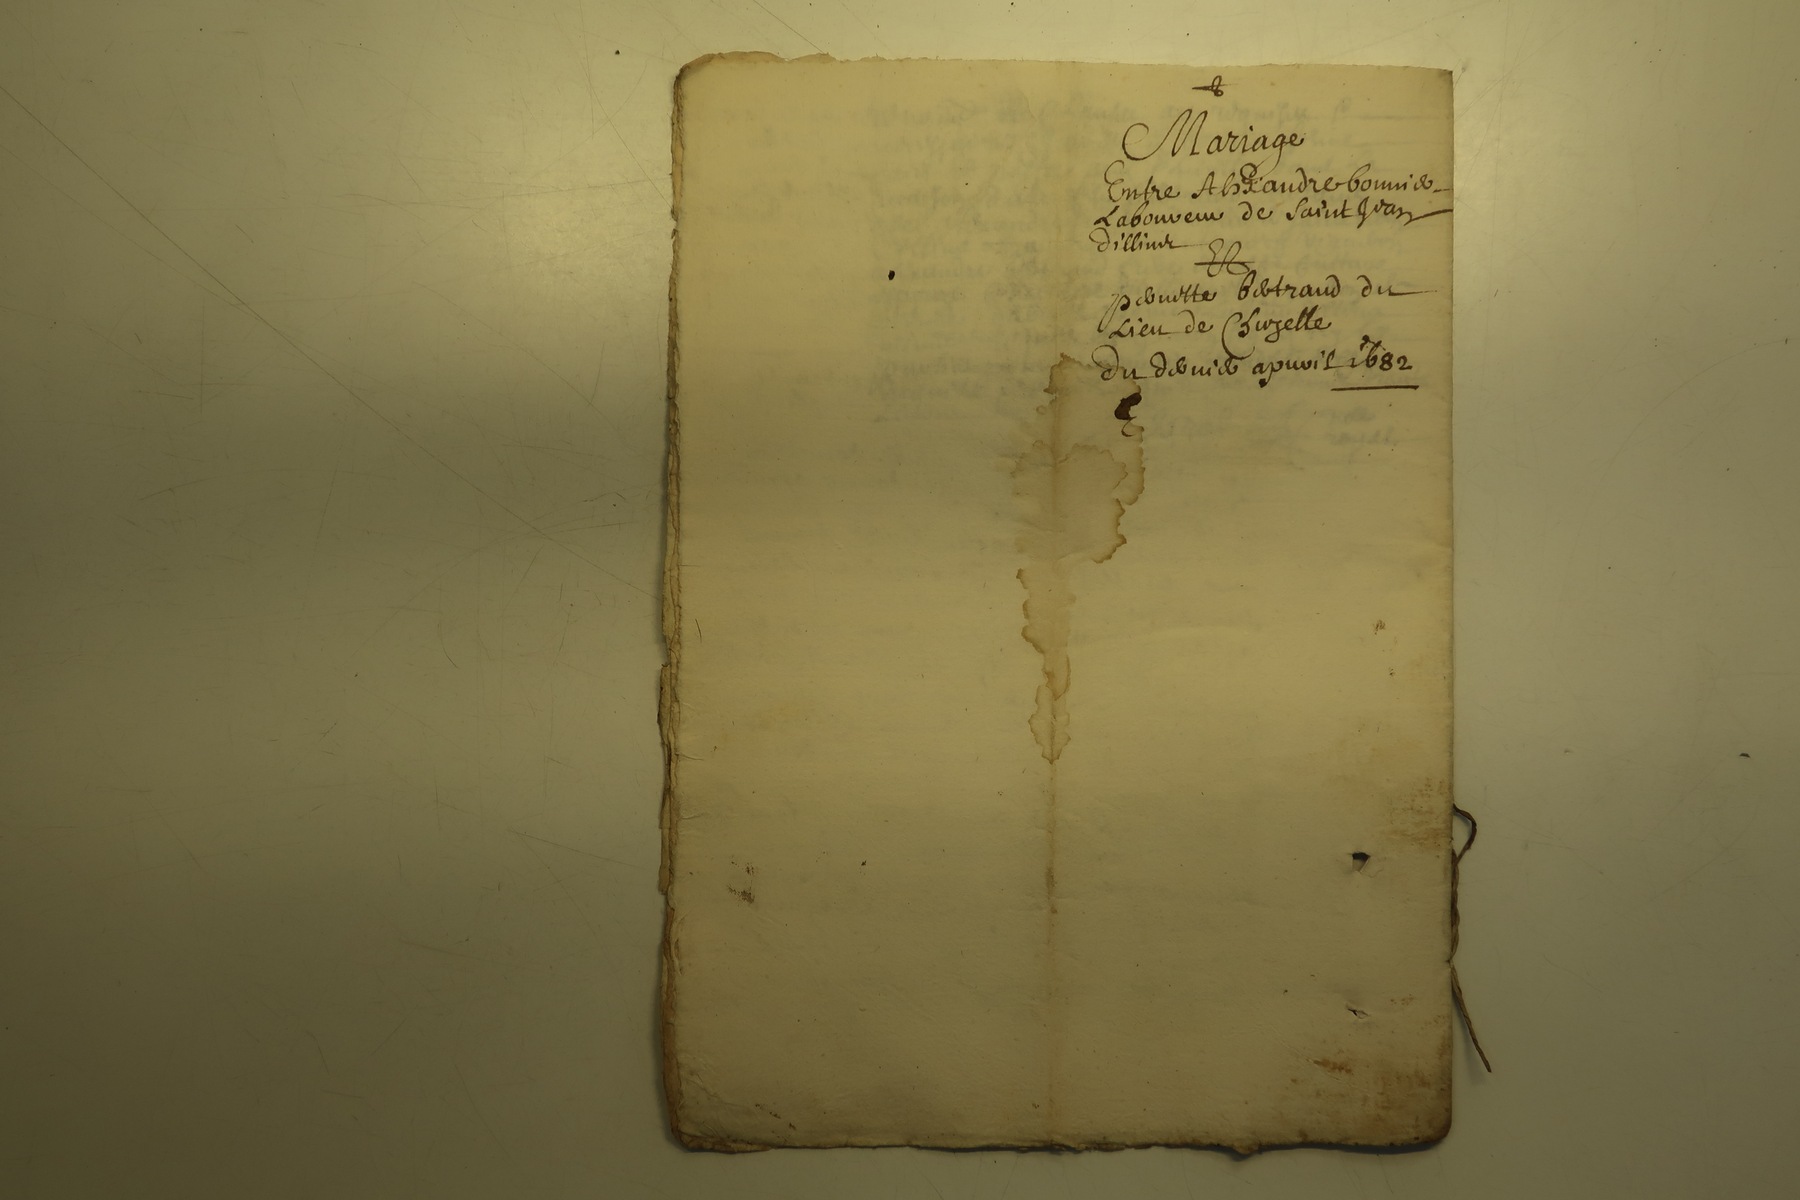 Mariage
Entre Alexandre bonnier
Laboureur de Saint Jean
dillins
Et
pernette bertrand du
Lieu de Chuzelle
Du dernier apvril 1682